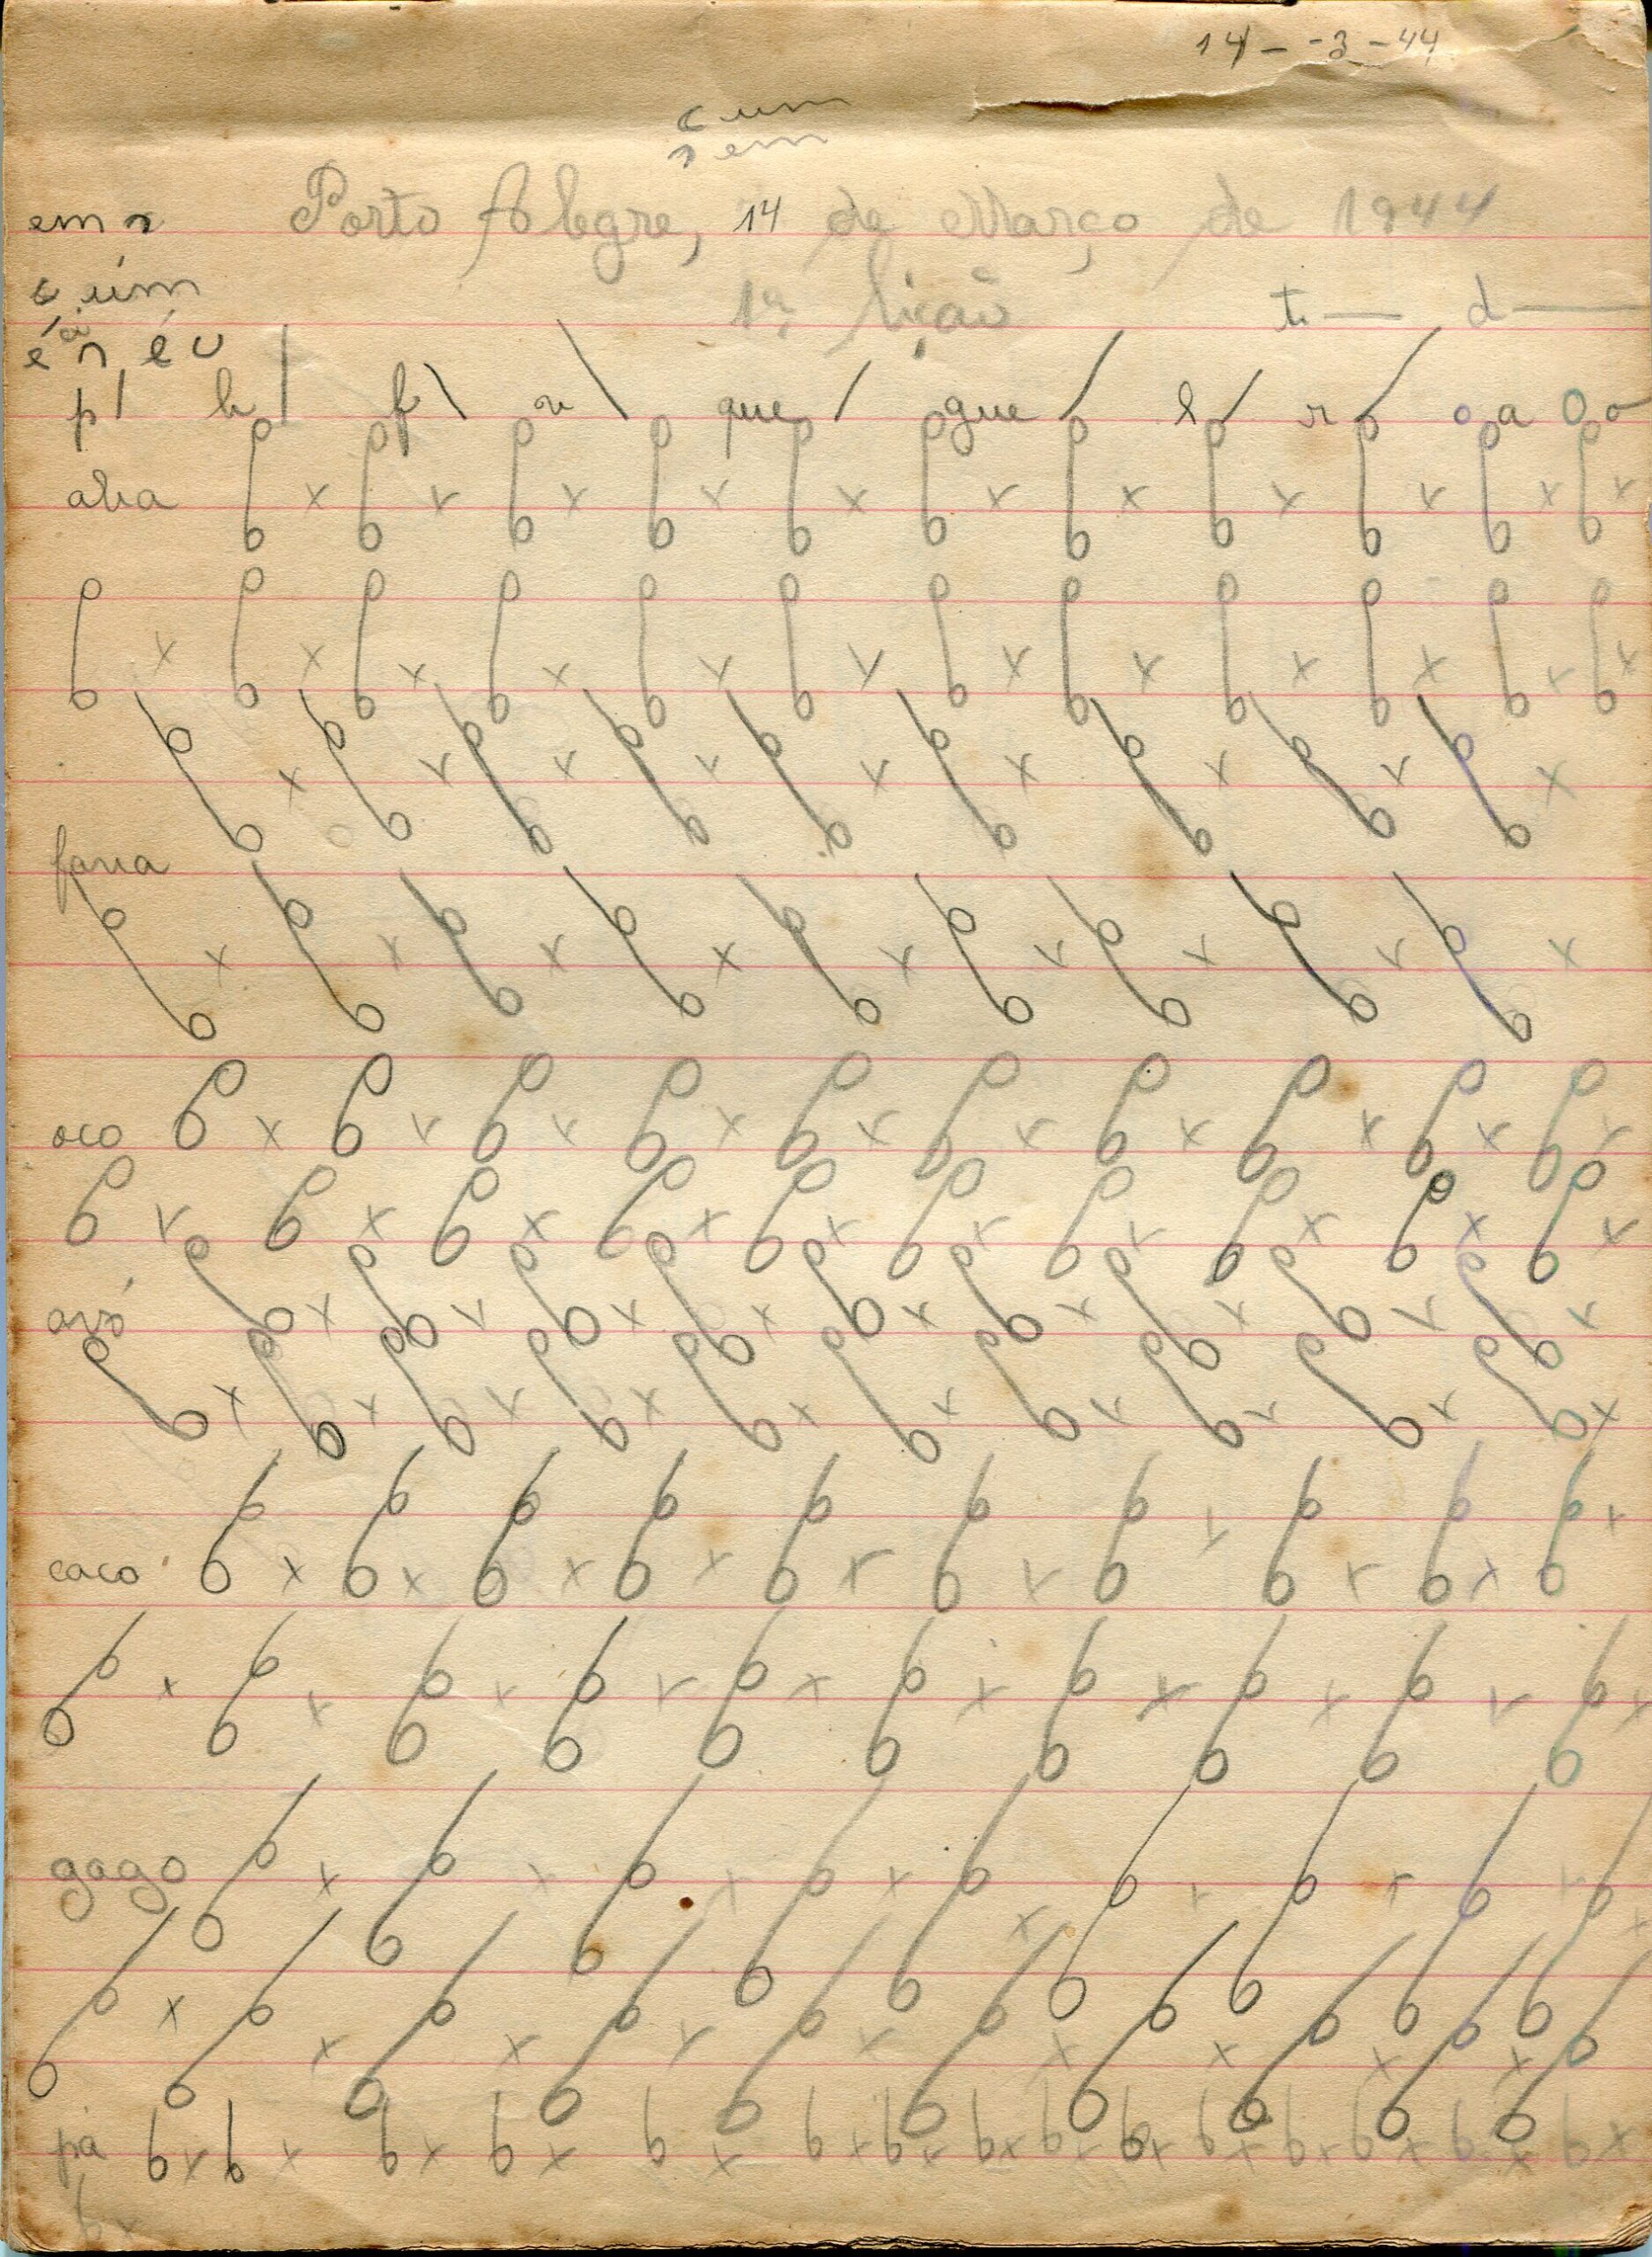 14 - - 3 - 44
c um
n em
em n Porto Alegre, 14 de Março de 1944
c úm
1ª lição t — d —
é n éu
p | b | f \ v \ que / gue / l / r / o a O o
aba
fava
oco
avó
caco
gago
pá